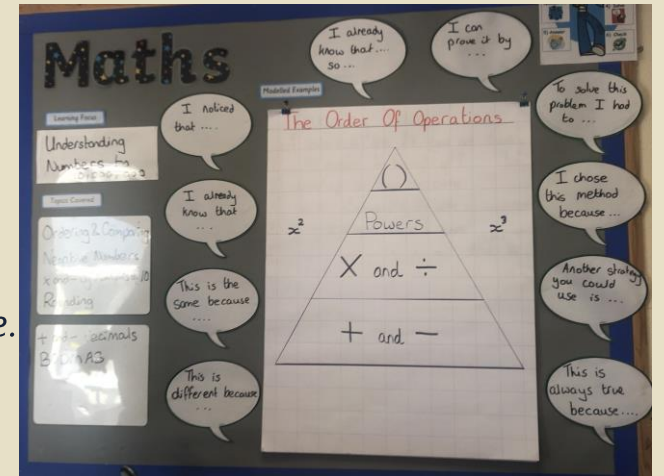 Maths
Learning Focus
Understanding
Numbers to
Topics Covered
Ordering & Comparing
Negative Numbers
Rounding
decimals
I noticed
that ....
I already
know that
...
This is the
same because
....
This is
different because
...
I already
know that....
so ...
I can
prove it by
...
Modelled Examples
The Order Of Operations
( )
x²
Powers
x³
X and ÷
+ and −
Answer
Check
To solve this
problem I had
to ...
I chose
this method
because ...
Another strategy
you could
use is ...
This is
always true
because....
e.